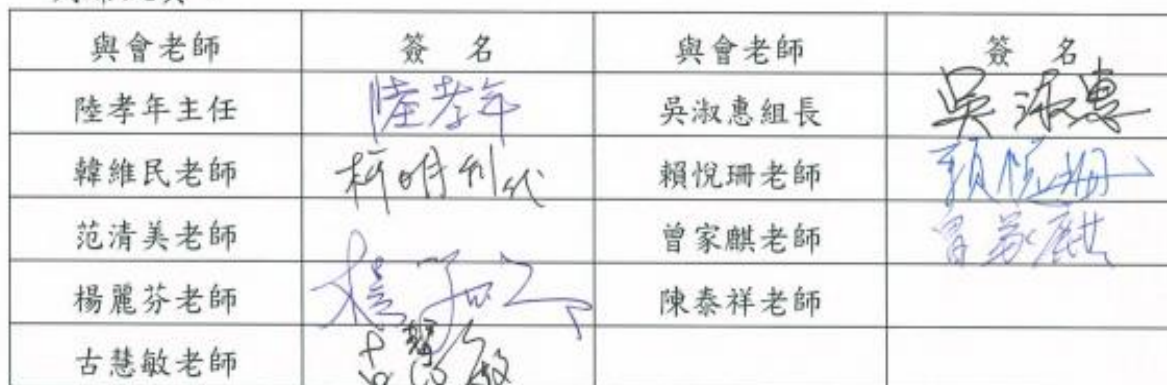 與會老師 簽 名 與會老師 簽 名
陸孝年主任 陸孝年 吳淑惠組長 吳淑惠
韓維民老師 柯明利代 賴悅珊老師 賴悅珊
范清美老師 曾家麒老師 曾家麒
楊麗芬老師 陳泰祥老師
古慧敏老師 古慧敏